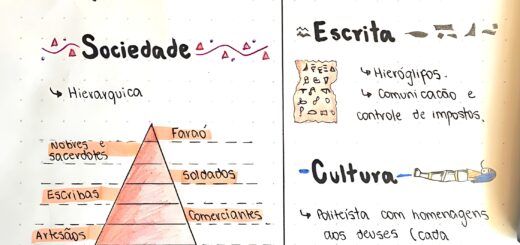 Sociedade
↳ Hierarquica
Faraó
Nobres e
sacerdotes
Soldados
Escribas
Comerciantes
Artesãos
Escrita
↳ Hieróglifos.
↳ Comunicacão e
controle de impostos.
Cultura
↳ Politeísta com homenagens
aos deuses (cada